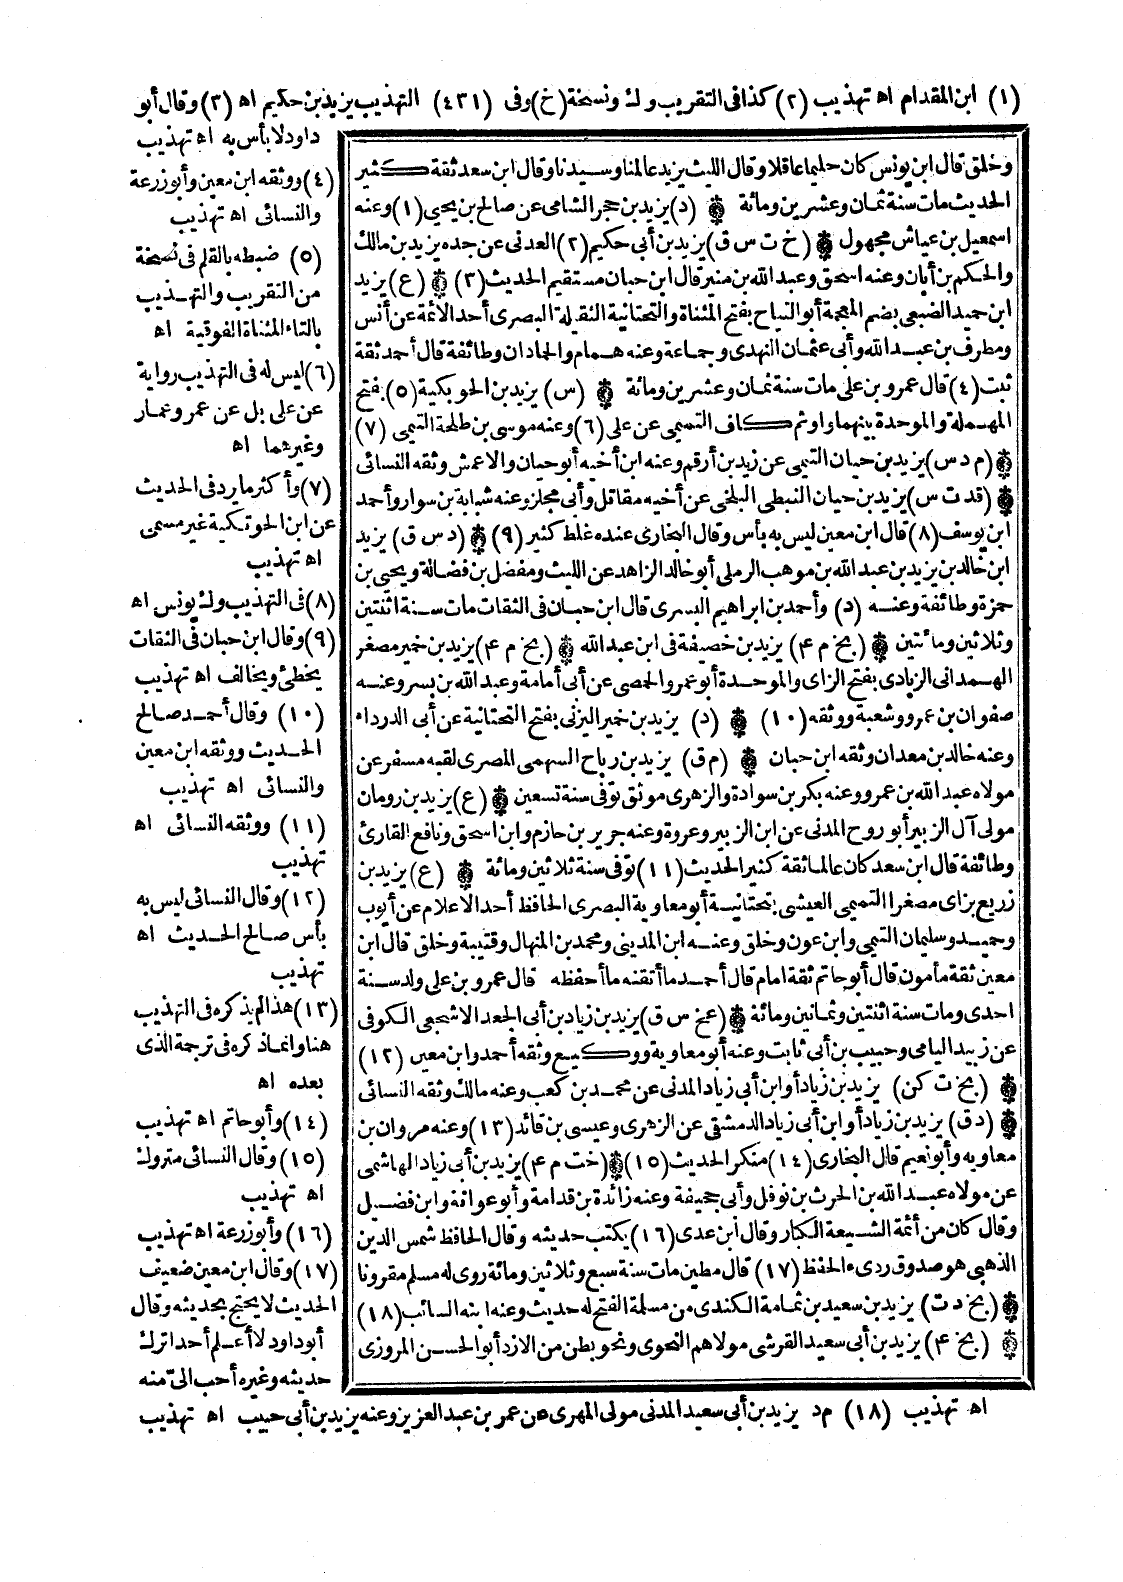 (١) ابن المقدام اه تهذيب (٢) كذا فى التقريب ولـ ونسخة (خ) وفى (٤٣١) التهذيب يزيد بن حكيم اه (٣) وقال أبو
داود لا بأس به اه تهذيب
(٤) ووثقه ابن معين وأبو زرعة
والنسائى اه تهذيب
(٥) ضبطه بالقلم فى نسخة
من التقريب والتهذيب
بالتاء المثناة الفوقية اه
(٦) ليس له فى التهذيب رواية
عن على بل عن عمر وعمار
وغيرهما اه
(٧) وأكثر ما يرد فى الحديث
عن ابن الحوتكية غير مسمى
اه تهذيب
(٨) فى التهذيب ولـ يونس اه
(٩) وقال ابن حبان فى الثقات
يخطئ ويخالف اه تهذيب
(١٠) وقال أحمد صالح
الحديث ووثقه ابن معين
والنسائى اه تهذيب
(١١) ووثقه النسائى اه
تهذيب
(١٢) وقال النسائى ليس به
بأس صالح الحديث اه
تهذيب
(١٣) هذا لم يذكره فى التهذيب
هنا وانما ذكره فى ترجمة الذى
بعده اه
(١٤) وأبو حاتم اه تهذيب
(١٥) وقال النسائى متروك
اه تهذيب
(١٦) وأبو زرعة اه تهذيب
(١٧) وقال ابن معين ضعيف
الحديث لا يحتج بحديثه وقال
أبو داود لا أعلم أحدا ترك
حديثه وغيره أحب الىّ منه
وخلق قال ابن يونس كان حليما عاقلا وقال الليث يزيد عالمنا وسيدنا وقال ابن سعد ثقة كثير
الحديث مات سنة ثمان وعشرين ومائة (د) يزيد بن حجر الشامى عن صالح بن يحيى (١) وعنه
اسمعيل بن عياش مجهول (خ ت س ق) يزيد بن أبى حكيم (٢) العدنى عن جده يزيد بن مالك
والحكم بن أبان وعنه اسحق وعبد الله بن منير قال ابن حبان مستقيم الحديث (٣) (ع) يزيد
ابن حميد الضبعى بضم المعجمة أبو التياح بفتح المثناة والتحتانية الثقيلة البصرى أحد الائمة عن أنس
ومطرف بن عبد الله وأبى عثمان النهدى وجماعة وعنه همام والحمادان وطائفة قال أحمد ثقة
ثبت (٤) قال عمرو بن على مات سنة ثمان وعشرين ومائة (س) يزيد بن الحوبكية (٥) بفتح
المهملة والموحدة بينهما واو ثم كاف التميمى عن على (٦) وعنه موسى بن طلحة التيمى (٧)
(م د س) يزيد بن حيان التيمى عن زيد بن أرقم وعنه ابن أخيه أبو حيان والاعمش وثقه النسائى
(قد ت س) يزيد بن حيان النبطى البلخى عن أخيه مقاتل وأبى مجلز وعنه شبابة بن سوار وأحمد
ابن يوسف (٨) قال ابن معين ليس به بأس وقال البخارى عنده غلط كثير (٩) (د س ق) يزيد
ابن خالد بن يزيد بن عبد الله بن موهب الرملى أبو خالد الزاهد عن الليث ومفضل بن فضالة ويحيى بن
حمزة وطائفة وعنه (د) وأحمد بن ابراهيم البسرى قال ابن حبان فى الثقات مات سنة اثنتين
وثلاثين ومائتين (بخ م ٤) يزيد بن خصيفة فى ابن عبد الله (بخ م ٤) يزيد بن خمير مصغر
الهمدانى الزيادى بفتح الزاى والموحدة أبو عمرو الحمصى عن أبى أمامة وعبد الله بن بسر وعنه
صفوان بن عمرو وشعبة ووثقه (١٠) (د) يزيد بن خمير اليزنى بفتح التحتانية عن أبى الدرداء
وعنه خالد بن معدان وثقه ابن حبان (م ق) يزيد بن رباح السهمى المصرى لقبه مسفر عن
مولاه عبد الله بن عمرو وعنه بكر بن سوادة والزهرى موثق توفى سنة تسعين (ع) يزيد بن رومان
مولى آل الزبير أبو روح المدنى عن ابن الزبير وعروة وعنه جرير بن حازم وابن اسحق ونافع القارئ
وطائفة قال ابن سعد كان عالما ثقة كثير الحديث (١١) توفى سنة ثلاثين ومائة (ع) يزيد بن
زريع بزاى مصغرا التميمى العيشى بتحتانية أبو معاوية البصرى الحافظ أحد الاعلام عن أيوب
وحميد وسليمان التيمى وابن عون وخلق وعنه ابن المدينى ومحمد بن المنهال وقتيبة وخلق قال ابن
معين ثقة مأمون قال أبو حاتم ثقة امام قال أحمد ما أتقنه ما أحفظه قال عمرو بن على ولد سنة
احدى ومات سنة اثنتين وثمانين ومائة (عخ س ق) يزيد بن زياد بن أبى الجعد الاشجعى الكوفى
عن زبيد اليامى وحبيب بن أبى ثابت وعنه أبو معاوية ووكيع وثقه أحمد وابن معين (١٢)
(بخ ت كن) يزيد بن زياد أو ابن أبى زياد المدنى عن محمد بن كعب وعنه مالك وثقه النسائى
(د ق) يزيد بن زياد أو ابن أبى زياد الدمشقى عن الزهرى وعيسى بن قائد (١٣) وعنه مروان بن
معاوية وأبو نعيم قال البخارى (١٤) منكر الحديث (١٥) (خت م ٤) يزيد بن أبى زياد الهاشمى
عن مولاه عبد الله بن الحرث بن نوفل وأبى جحيفة وعنه زائدة بن قدامة وأبو عوانة وابن فضيل
وقال كان من أئمة الشيعة الكبار وقال ابن عدى (١٦) يكتب حديثه وقال الحافظ شمس الدين
الذهبى هو صدوق ردىء الحفظ (١٧) قال مطين مات سنة سبع وثلاثين ومائة روى له مسلم مقرونا
(بخ د ت) يزيد بن سعيد بن ثمامة الكندى من مسلمة الفتح له حديث وعنه ابنه السائب (١٨)
(بخ ٤) يزيد بن أبى سعيد القرشى مولاهم النحوى ونحو بطن من الازد أبو الحسن المروزى
اه تهذيب (١٨) م د يزيد بن أبى سعيد المدنى مولى المهرى عن عمر بن عبد العزيز وعنه يزيد بن أبى حبيب اه تهذيب